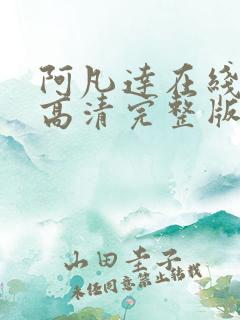 阿凡達在綫
高清完整版
山田圭子
未經同意禁止轉載